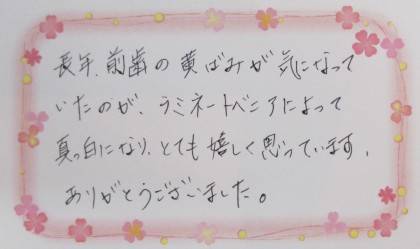 長年、前歯の黄ばみが気になって
いたのが、ラミネートベニアによって
真っ白になり、とても嬉しく思っています。
ありがとうございました。